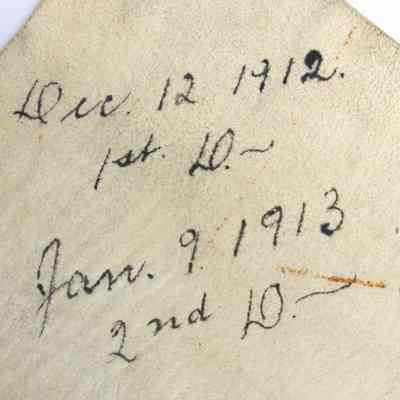 Dec. 12 1912.
1st. D.~
Jan. 9 1913
2nd D.~